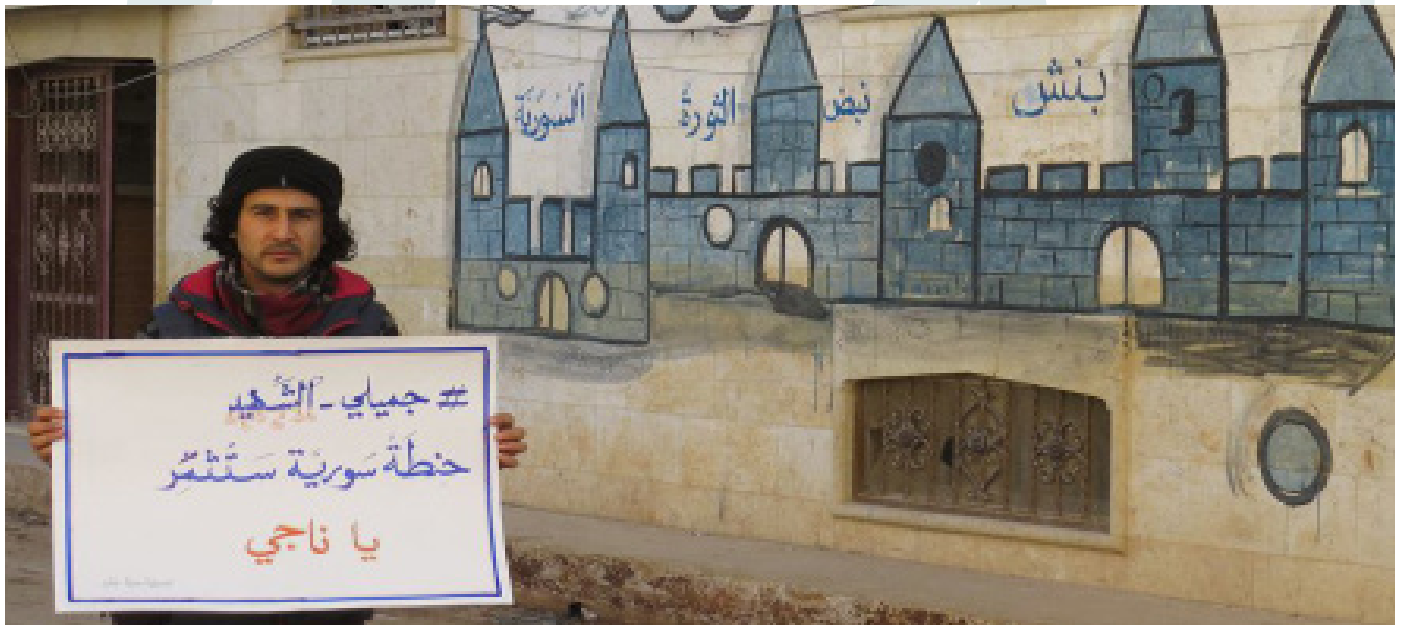 بنش نبض الثورة السورية
# جميلي - الشهيد
حنطة سورية ستثمر
يا ناجي